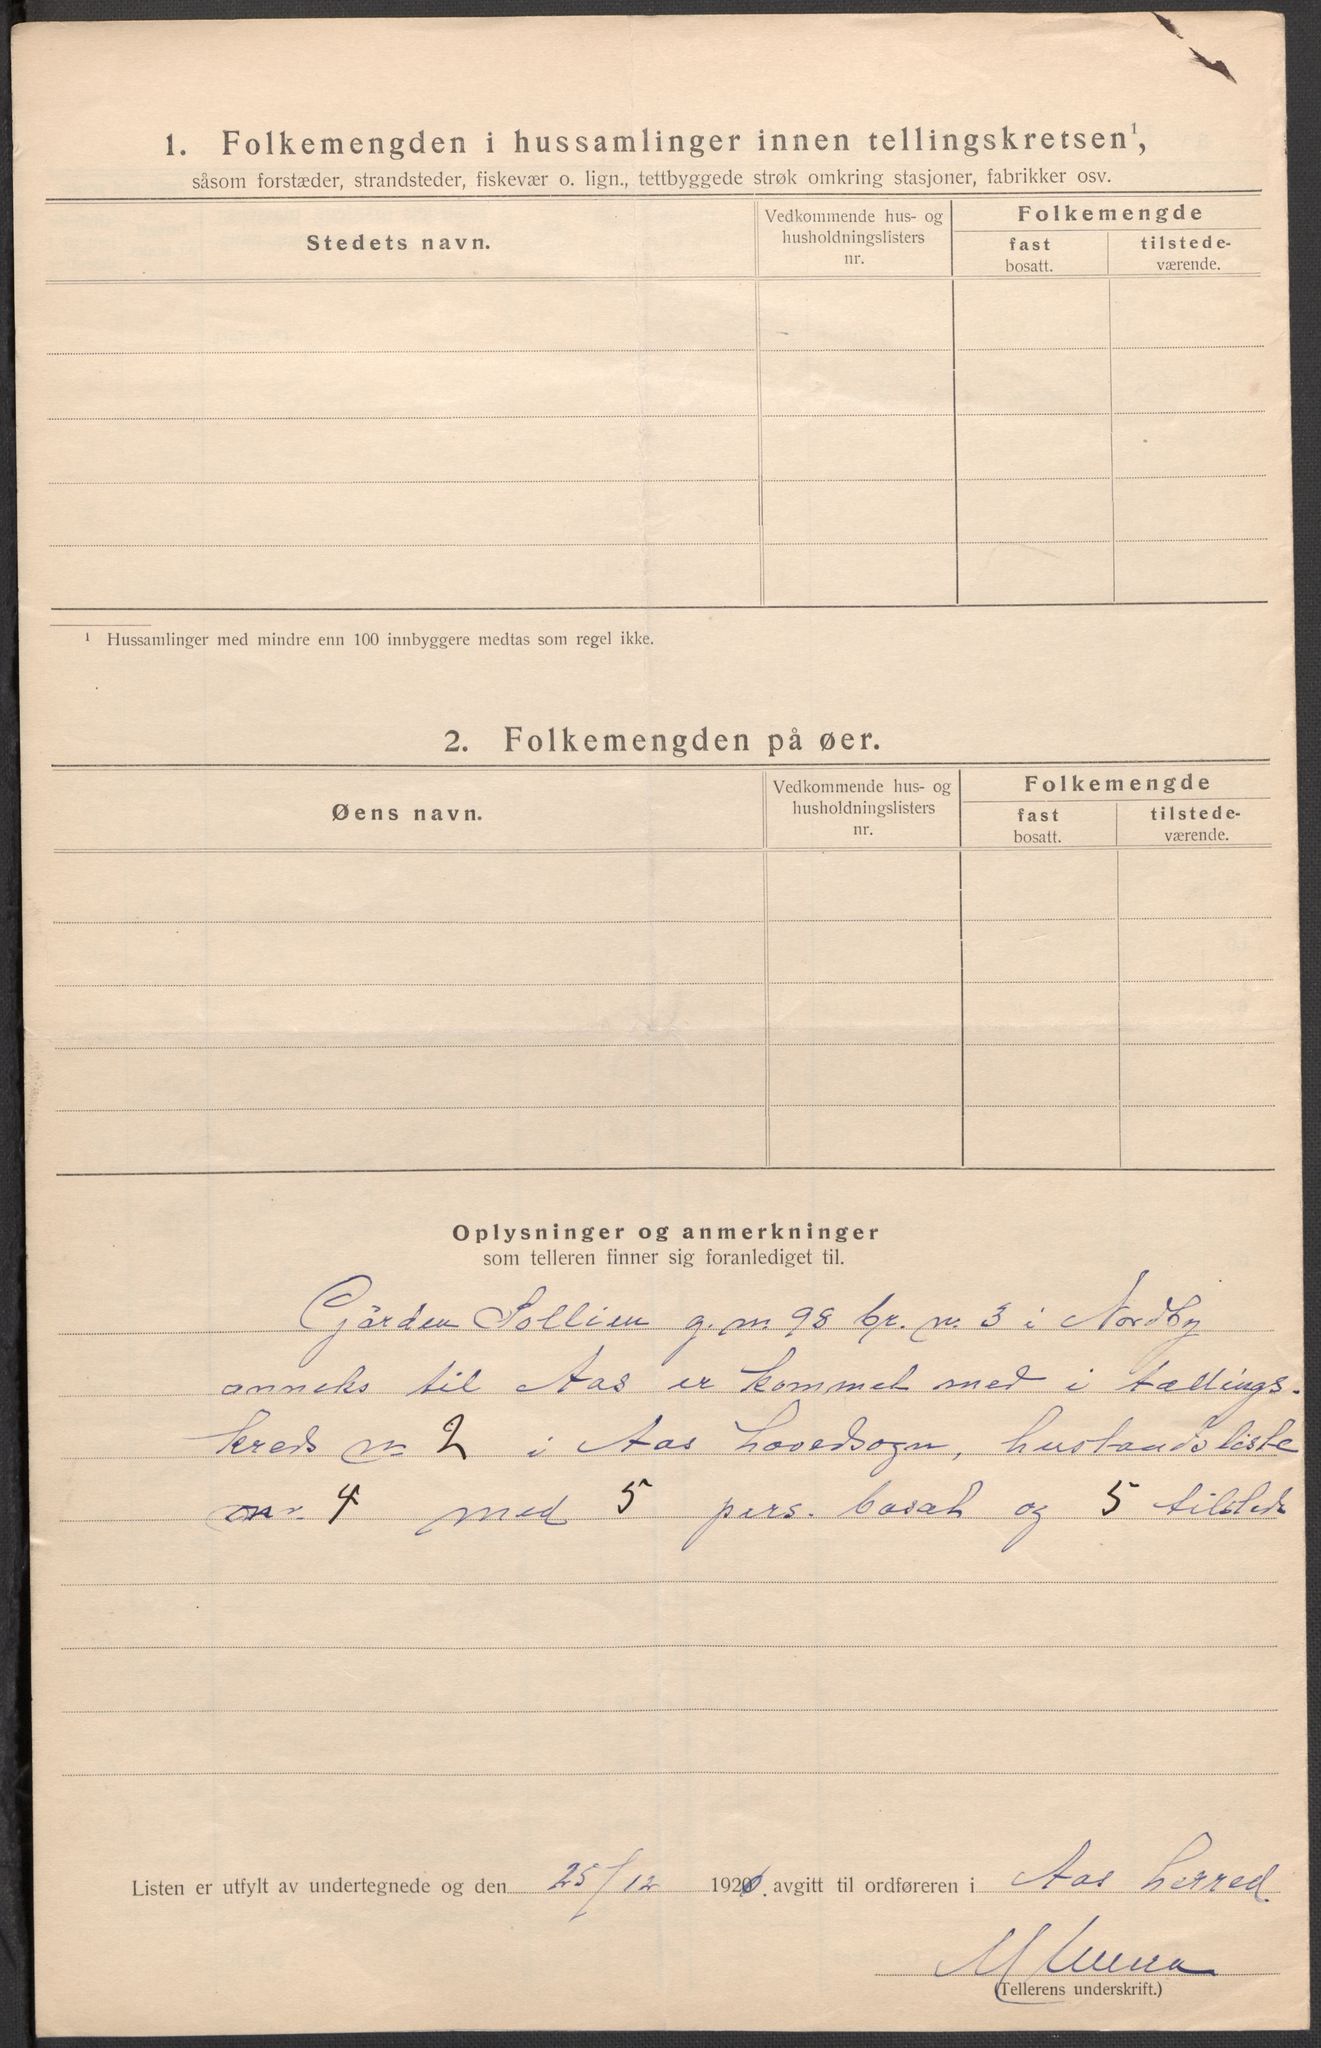 1. Folkemengden i hussamlinger innen tellingskretsen¹,
såsom forstæder, strandsteder, fiskevær o. lign., tettbyggede strøk omkring stasjoner, fabrikker osv.
Stedets navn.
Vedkommende hus- og
husholdningslisters
nr.
Folkemengde
fast
bosatt.
tilstede-
værende.
¹ Hussamlinger med mindre enn 100 innbyggere medtas som regel ikke.
2. Folkemengden på øer.
Øens navn.
Vedkommende hus- og
husholdningslisters
nr.
Folkemengde
fast
bosatt.
tilstede-
værende.
Oplysninger og anmerkninger
som telleren finner sig foranlediget til.
Gården Sollien g. nr. 98 br. nr. 3 i Nordby
anneks til Aas er kommet med i tællings-
kreds nr 2 i Aas hovedsogn, husstandsliste
nr. 4 med 5 pers. bosat og 5 tilstede
Listen er utfylt av undertegnede og den 25/12 1920. avgitt til ordføreren i Aas herred.
(Tellerens underskrift.)